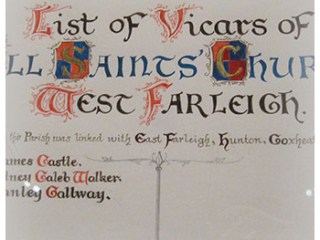 List of Vicars of
LL SAINTS' CHUR
WEST FARLEIGH.
the Parish was linked with East Farleigh, Hunton, Coxheat
ames Castle.
dney Caleb Walker.
anley Gallway.